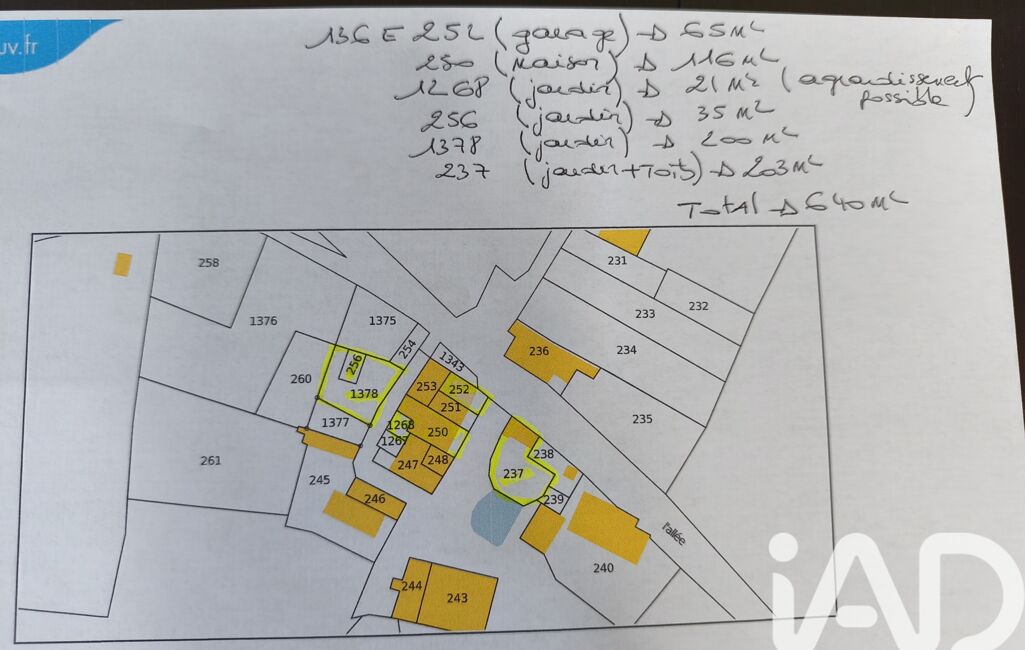 uv.fr
136 E 252 (garage) → 65 m²
250 (Maison) → 116 m²
1268 (jardin) → 21 m² (agrandissement possible)
256 (jardin) → 35 m²
1378 (jardin) → 200 m²
237 (jardin + Toits) → 203 m²
Total → 640 m²
258
231
232
1376
1375
233
254
1343
236
234
256
260
1378
253
252
251
235
1377
1268
250
1267
238
261
247
248
237
245
246
239
l'allée
240
244
243
iAD